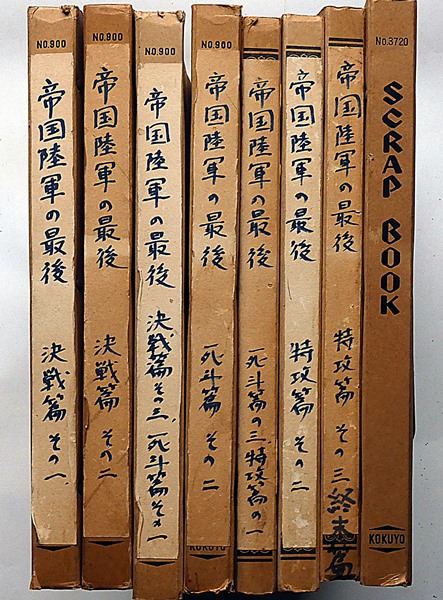 NO.900
帝国陸軍の最後
決戦篇 その一
NO.900
帝国陸軍の最後
決戦篇 その二
NO.900
帝国陸軍の最後
決戦篇その三、死斗篇その一
NO.900
帝国陸軍の最後
死斗篇 その二
KOKUYO
帝国陸軍の最後
死斗篇の三、特攻篇の一
帝国陸軍の最後
特攻篇 その二
帝国陸軍の最後
特攻篇 その三 終末篇
No.3720
SCRAP BOOK
KOKUYO